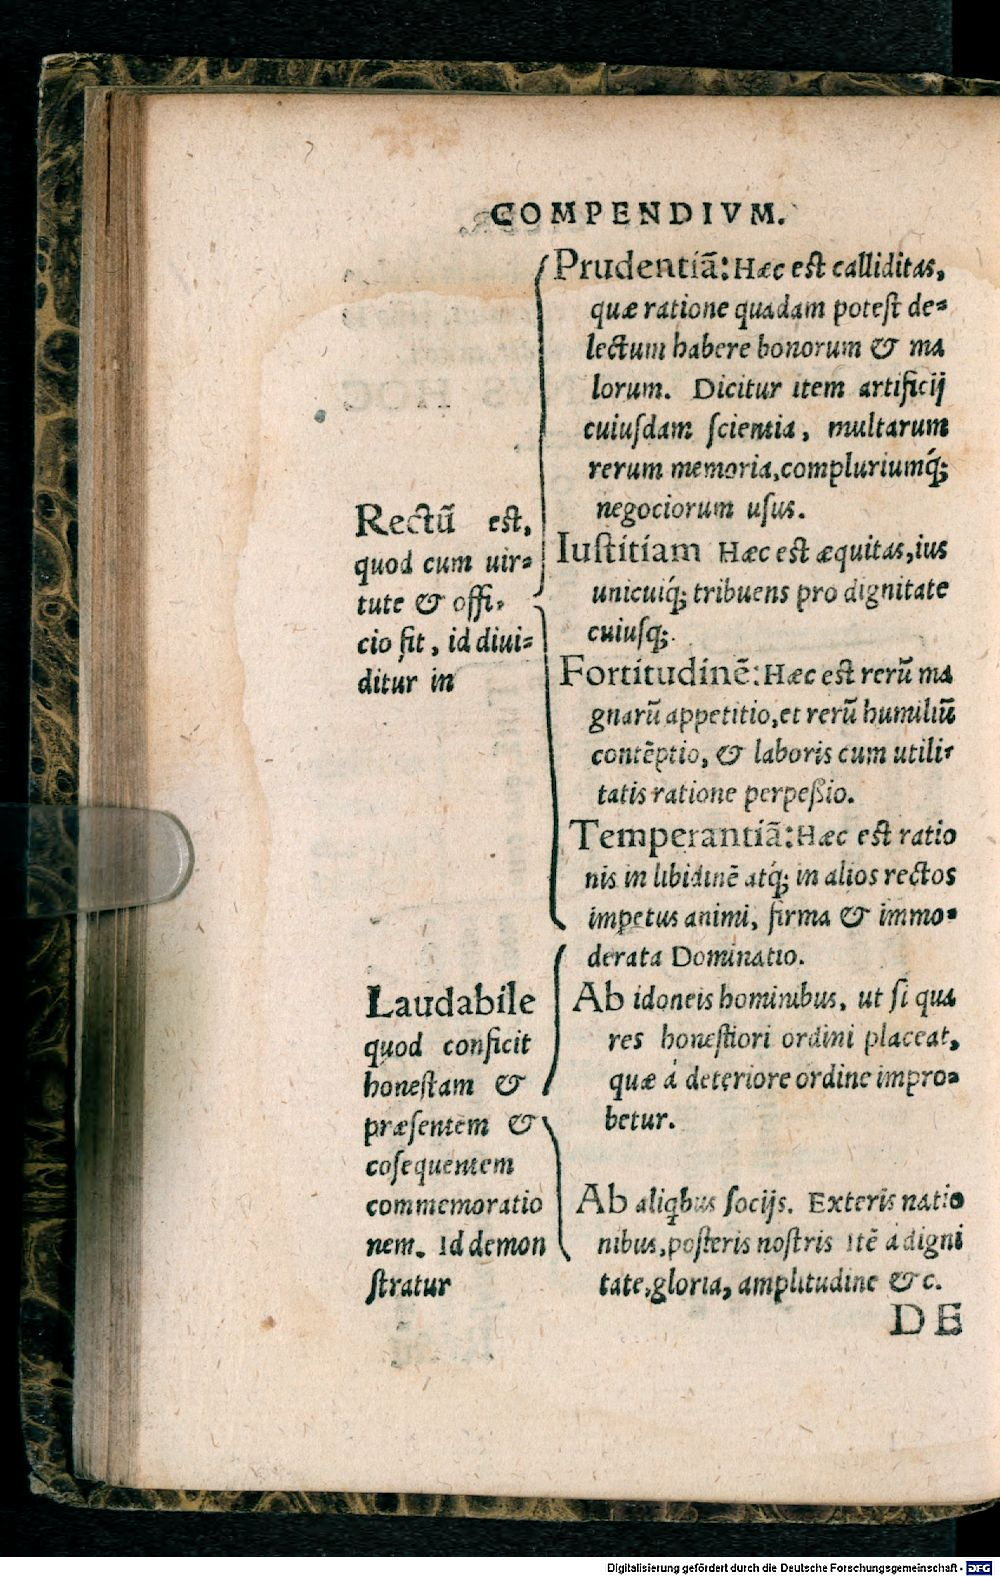 COMPENDIVM.
Rectũ est,
quod cum uir-
tute & offi-
cio fit, id diui-
ditur in
Prudentiã: Hæc est calliditas,
quæ ratione quadam potest de-
lectum habere bonorum & ma
lorum. Dicitur item artificij
cuiusdam scientia, multarum
rerum memoria, compluriumq́;
negociorum usus.
Iustitiam Hæc est æquitas, ius
unicuiq́; tribuens pro dignitate
cuiusq;.
Fortitudinẽ: Hæc est rerũ ma
gnarũ appetitio, et rerũ humiliũ
contẽptio, & laboris cum utili-
tatis ratione perpeßio.
Temperantiã: Hæc est ratio
nis in libidinẽ atq́; in alios rectos
impetus animi, firma & immo-
derata Dominatio.
Laudabile
quod conficit
honestam &
præsentem &
cosequentem
commemoratio
nem. Id demon
stratur
Ab idoneis hominibus, ut si qua
res honestiori ordini placeat,
quæ á deteriore ordine impro-
betur.
Ab aliqbus socijs. Exteris natio
nibus, posteris nostris Itẽ á digni
tate, gloria, amplitudine & c.
DE
Digitalisierung gefördert durch die Deutsche Forschungsgemeinschaft - DFG